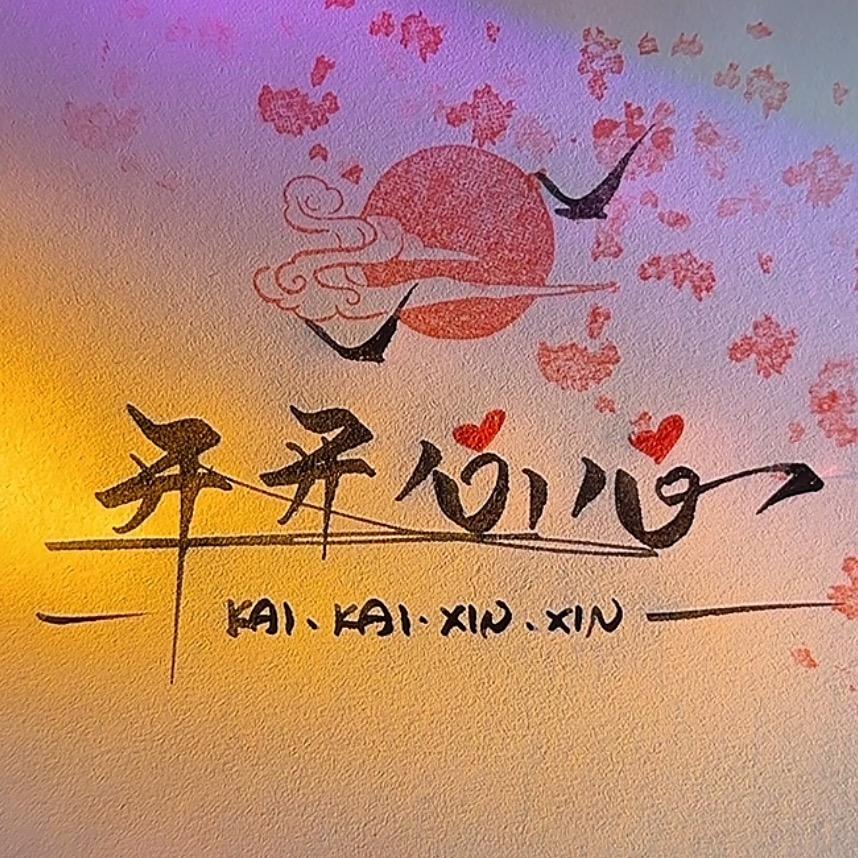 开开心心
KAI·KAI·XIN·XIN